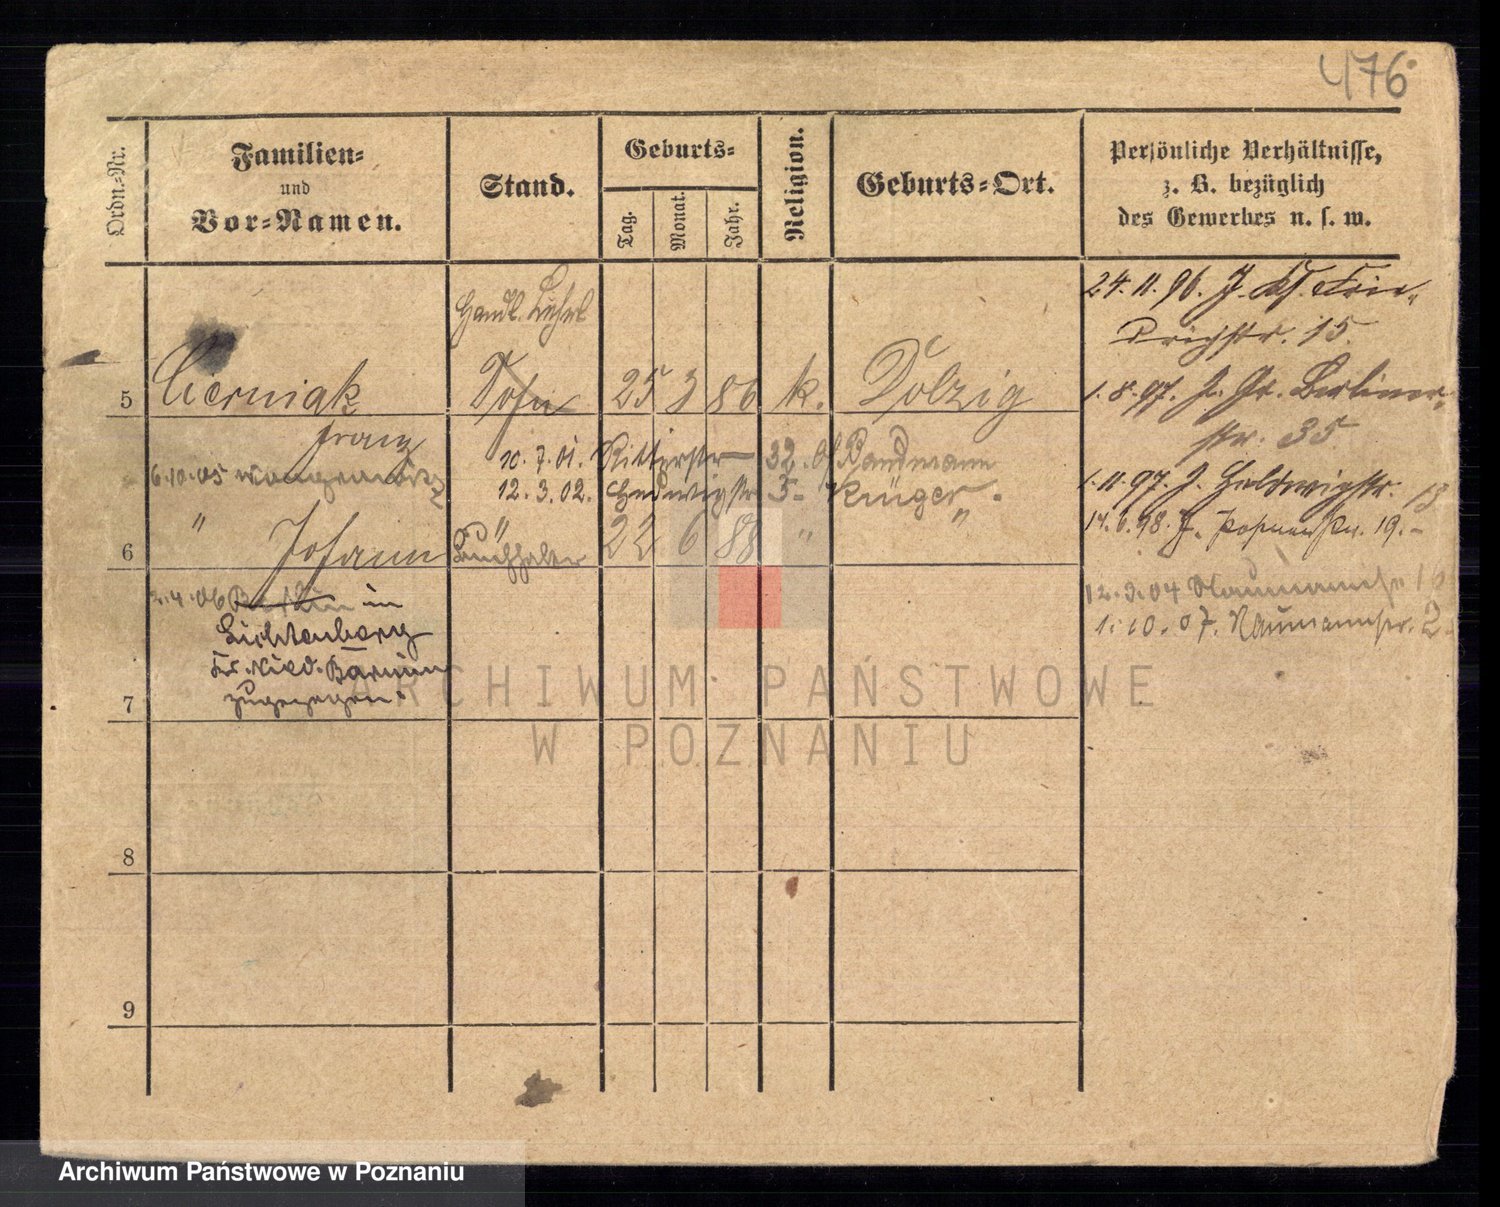 476
Ordn.-Nr.
Familien-
und
Vor-Namen.
Stand.
Geburts-
Tag.
Monat.
Jahr.
Religion.
Geburts-Ort.
Persönliche Verhältnisse,
z. B. bezüglich
des Gewerbes u. s. w.
Handl.
24. 11. 96. J.
15.
5 Cierniak Sohn 25 3 86 k. Dolzig
1. 8. 97. J. Gr. Berliner-
str. 35
Franz
10. 7. 01. Ritterstr 32. Bandmann
6.10.05
12. 3. 02. Hedwigstr 5. Krüger
1. 11. 97. J. 13
14. 6. 98. J. Posenerstr. 19.
6 " Johann " Buchhalter 22 6 88 " "
2.4.06 Berlin in
Lichtenberg
Kr. Nied. Barnim
zugezogen.
12. 3. 04 Naumannstr 16
1. 10. 07. Naumannstr. 2
7
8
9
ARCHIWUM PAŃSTWOWE
W POZNANIU
Archiwum Państwowe w Poznaniu